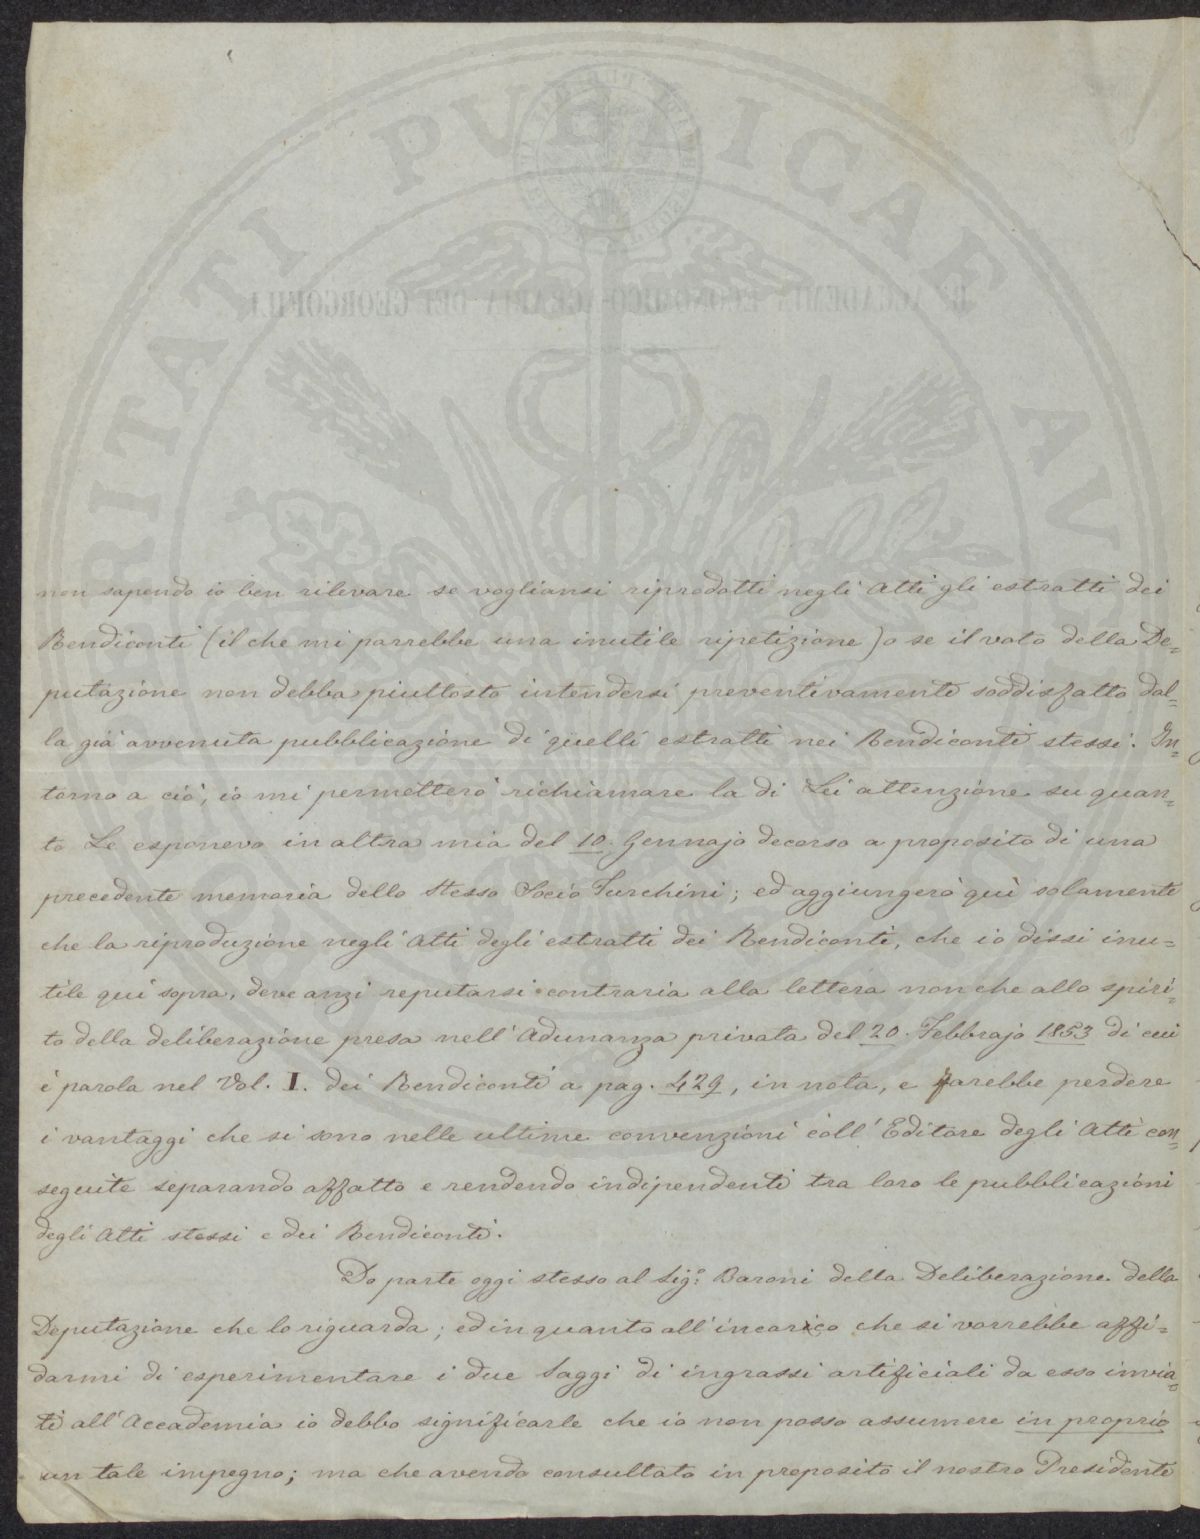 PROSPERITATI PUBLICAE AU
R. ACCADEMIA ECONOMICO-AGRARIA DEI GEORGOFILI
non sapendo io ben rilevare se vogliansi riprodotti negli Atti gli estratti dei
Rendiconti (il che mi parrebbe una inutile ripetizione) o se il voto della De=
putazione non debba piuttosto intendersi preventivamente soddisfatto dal=
la già avvenuta pubblicazione di quelli estratti nei Rendiconti stessi. In=
torno a ciò, io mi permetterò richiamare la di Lei attenzione su quan=
to Le esponevo in altra mia del 10. Gennajo decorso a proposito di una
precedente memoria dello stesso Socio Turchini; ed aggiungerò quì solamente
che la riproduzione negli Atti degli estratti dei Rendiconti, che io dissi inu=
tile quì sopra, deve anzi reputarsi contraria alla lettera non che allo spiri=
to della deliberazione presa nell'Adunanza privata del 20. Febbrajo 1853 di cui
è parola nel Vol. I. dei Rendiconti a pag. 429, in nota, e farebbe perdere
i vantaggi che si sono nelle ultime convenzioni coll'Editore degli Atti con=
seguite separando affatto e rendendo indipendenti tra loro le pubblicazioni
degli Atti stessi e dei Rendiconti.
Do parte oggi stesso al Sig.<sup>o</sup> Baroni della Deliberazione della
Deputazione che lo riguarda; ed in quanto all'incarico che si vorrebbe affi=
darmi di esperimentare i due Saggi di ingrassi artificiali da esso invia=
ti all'Accademia io debbo significarle che io non posso assumere in proprio
un tale impegno; ma che avendo consultato in proposito il nostro Presidente